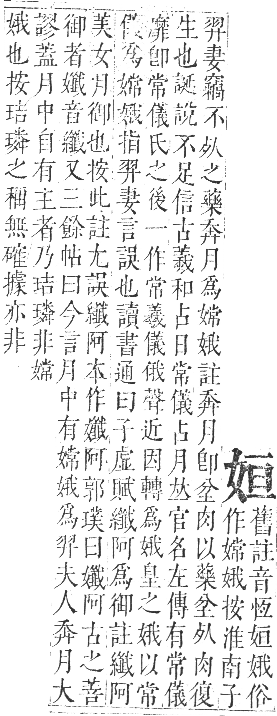 姮
舊註音恆姮娥俗
作嫦娥按淮南子
羿妻竊不死之藥奔月爲嫦娥註奔月卽坌肉以藥坌死肉復
生也誕說不足信古羲和占日常儀占月𠀤官名左傳有常儀
靡卽常儀氏之後一作常羲儀俄聲近因轉爲娥皇之娥以常
儀爲嫦娥指羿妻言誤也讀書通曰子虛賦纖阿爲御註纖阿
美女月御也按此註尤誤纖阿本作孅阿郭璞曰孅阿古之善
御者孅音纖又三餘帖曰今言月中有嫦娥爲羿夫人奔月大
謬蓋月中自有主者乃璘非嫦
娥也按璘之稱無確據亦非